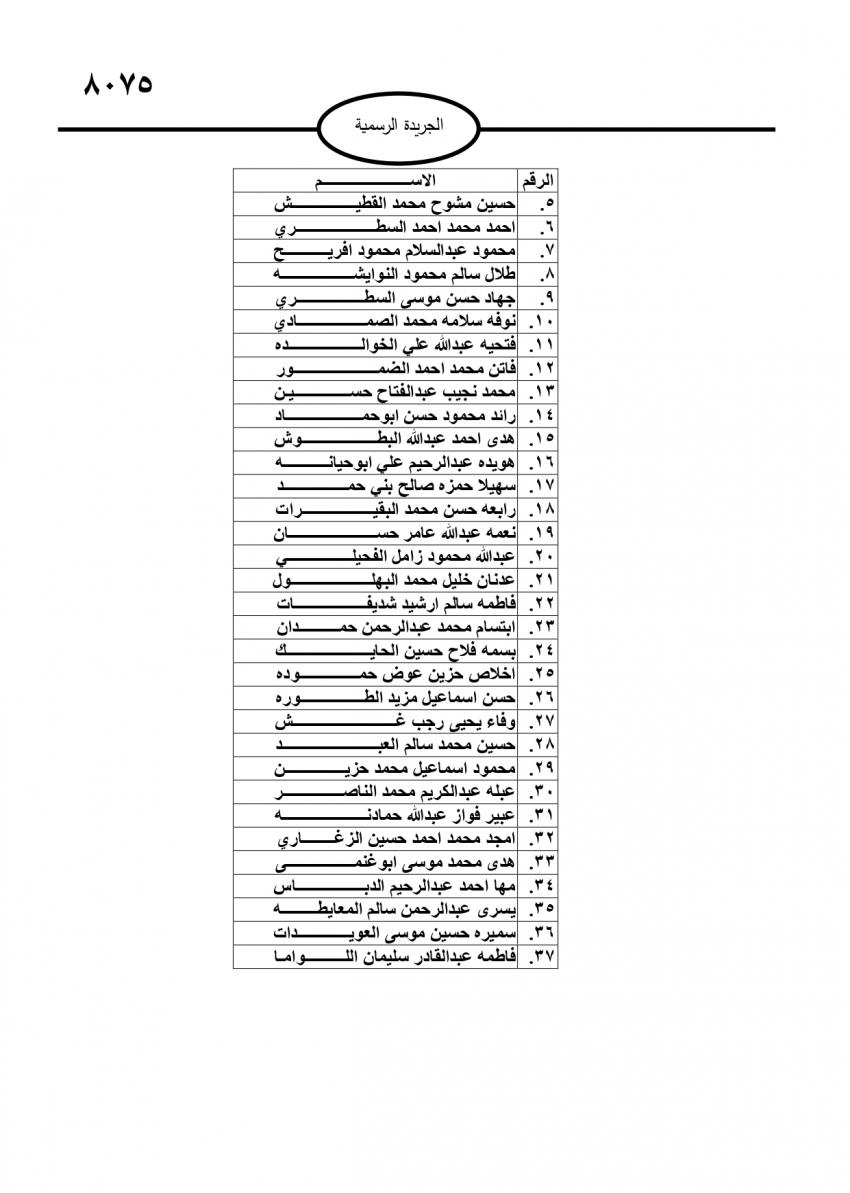 ٨٠٧٥
الجريدة الرسمية
الرقم الاســــــــــــم
٥. حسين مشوح محمد القطيــــــــش
٦. احمد محمد احمد السطــــــــري
٧. محمود عبدالسلام محمود افريــــــح
٨. طلال سالم محمود النوايشــــــــه
٩. جهاد حسن موسى السطــــــــري
١٠. نوفه سلامه محمد الصمــــــــادي
١١. فتحيه عبدالله علي الخوالــــــــده
١٢. فاتن محمد احمد الضمــــــــور
١٣. محمد نجيب عبدالفتاح حســــــــين
١٤. رائد محمود حسن ابوحمــــــــاد
١٥. هدى احمد عبدالله البطــــــــوش
١٦. هويده عبدالرحيم علي ابوحيانــــــــه
١٧. سهيلا حمزه صالح بني حمــــــــد
١٨. رابعه حسن محمد البقيــــــــرات
١٩. نعمه عبدالله عامر حســــــــان
٢٠. عبدالله محمود زامل الفحيلــــــــي
٢١. عدنان خليل محمد البهلــــــــول
٢٢. فاطمه سالم ارشيد شديفــــــــات
٢٣. ابتسام محمد عبدالرحمن حمــــــــدان
٢٤. بسمه فلاح حسين الحايــــــــك
٢٥. اخلاص حزين عوض حمــــــــوده
٢٦. حسن اسماعيل مزيد الطــــــــوره
٢٧. وفاء يحيى رجب غــــــــش
٢٨. حسين محمد سالم العبــــــــد
٢٩. محمود اسماعيل محمد حزيــــــــن
٣٠. عبله عبدالكريم محمد الناصــــــــر
٣١. عبير فواز عبدالله حمادنــــــــه
٣٢. امجد محمد احمد حسين الزغــــــــاري
٣٣. هدى محمد موسى ابوغنمــــــــى
٣٤. مها احمد عبدالرحيم الدبــــــــاس
٣٥. يسرى عبدالرحمن سالم المعايطــــــــه
٣٦. سميره حسين موسى العويــــــــدات
٣٧. فاطمه عبدالقادر سليمان اللــــــــواما